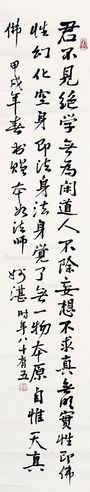 君不见绝学无为闲道人不除妄想不求真无明实性即佛
性幻化空身即法身法身觉了无一物本原自性天真
佛 甲戌年春书赠本如法师 妙湛时年八十有五